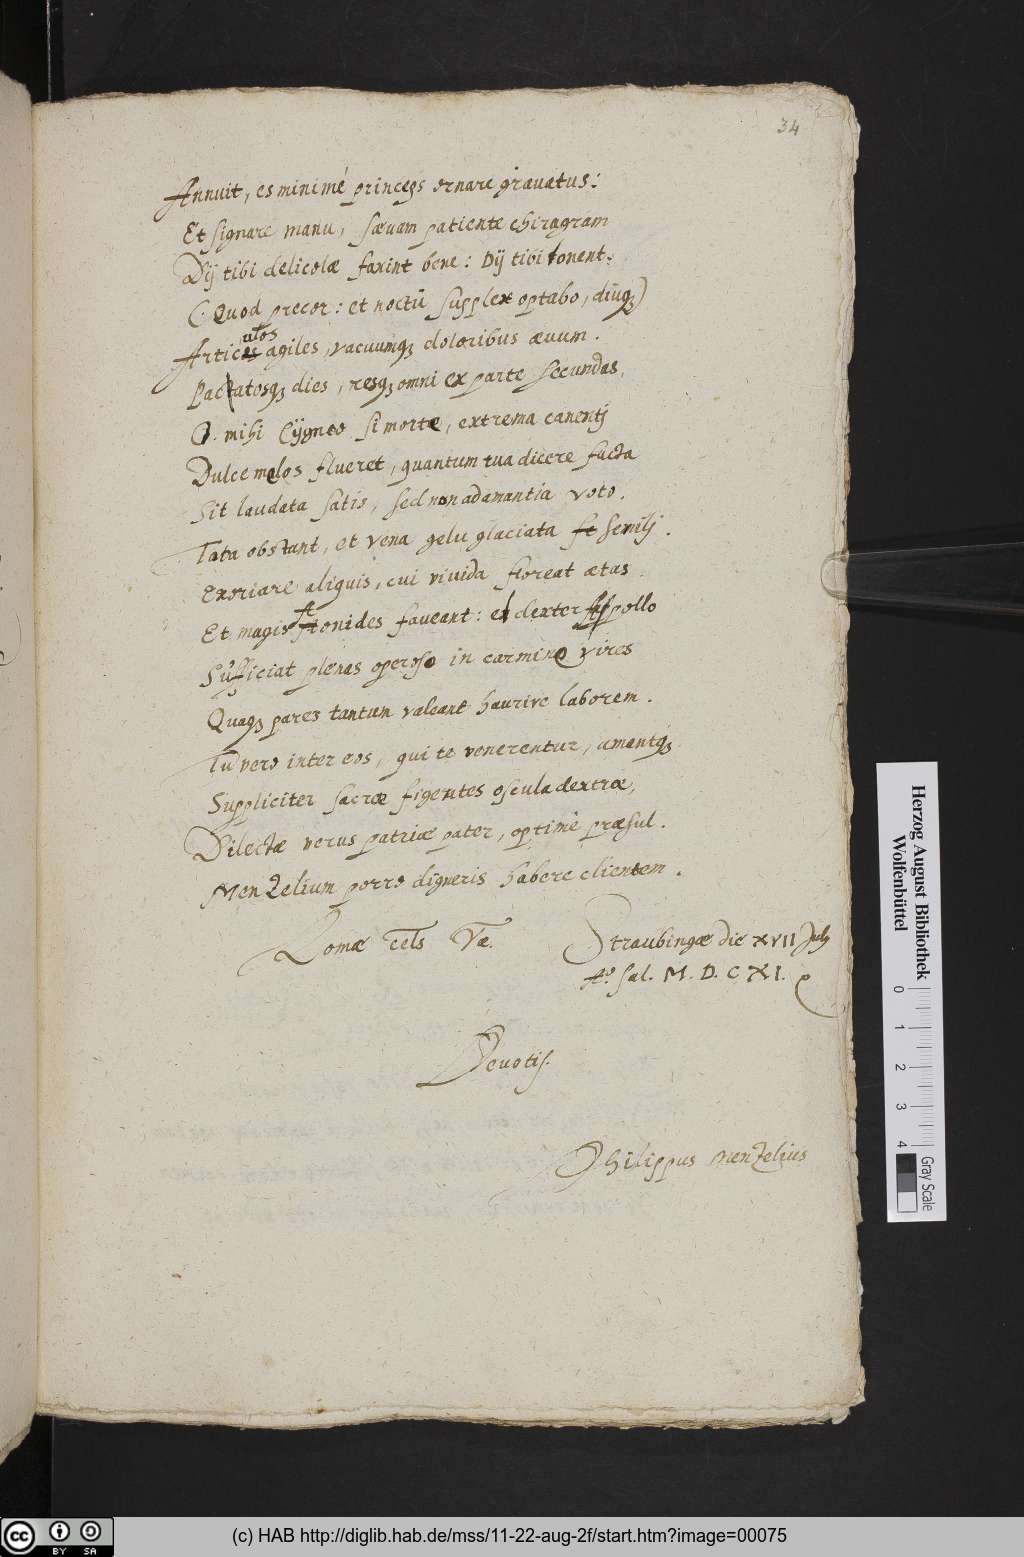 34
Annuit, es minimè princeps ornare grauatus:
Et signare manu, sævam patiente chiragram
Dij tibi delicolæ faxint bene: Dij tibi donent.
(Quod precor: et noctū supplex optabo, diuqȝ)
ulos
Artices agiles, vacuumqȝ doloribus æuum.
Pacatosqȝ dies, resqȝ omni ex parte secundas.
O. mihi Cÿgneo si morte, extrema canentj
Dulce melos flueret, quantum tua dicere facta
Sit laudata satis, sed non adamantia voto.
Fata obstant, et vena gelu glaciata senilj.
Exoriare aliquis, cui viuida floreat ætas
Et magis Aonides faueant: et dexter Appollo
Sufficiat plenas operoso in carmine vires
Quaqȝ pares tantum valeant haurire laborem.
Tu vero inter eos, qui te venerentur, amentqȝ
Suppliciter sacræ figentes oscula dextræ,
Dilectæ verus patriæ pater, optimè præsul.
Menzelium porro digneris habere clientem.
Cels Væ.
Straubingæ die XVII Julÿ
Aº. sal. M. D. C XI.
Deuotis.
Philippus Menzelius
Herzog August Bibliothek
Wolfenbüttel
0 1 2 3 4
Gray Scale
cc BY SA
(c) HAB http://diglib.hab.de/mss/11-22-aug-2f/start.htm?image=00075